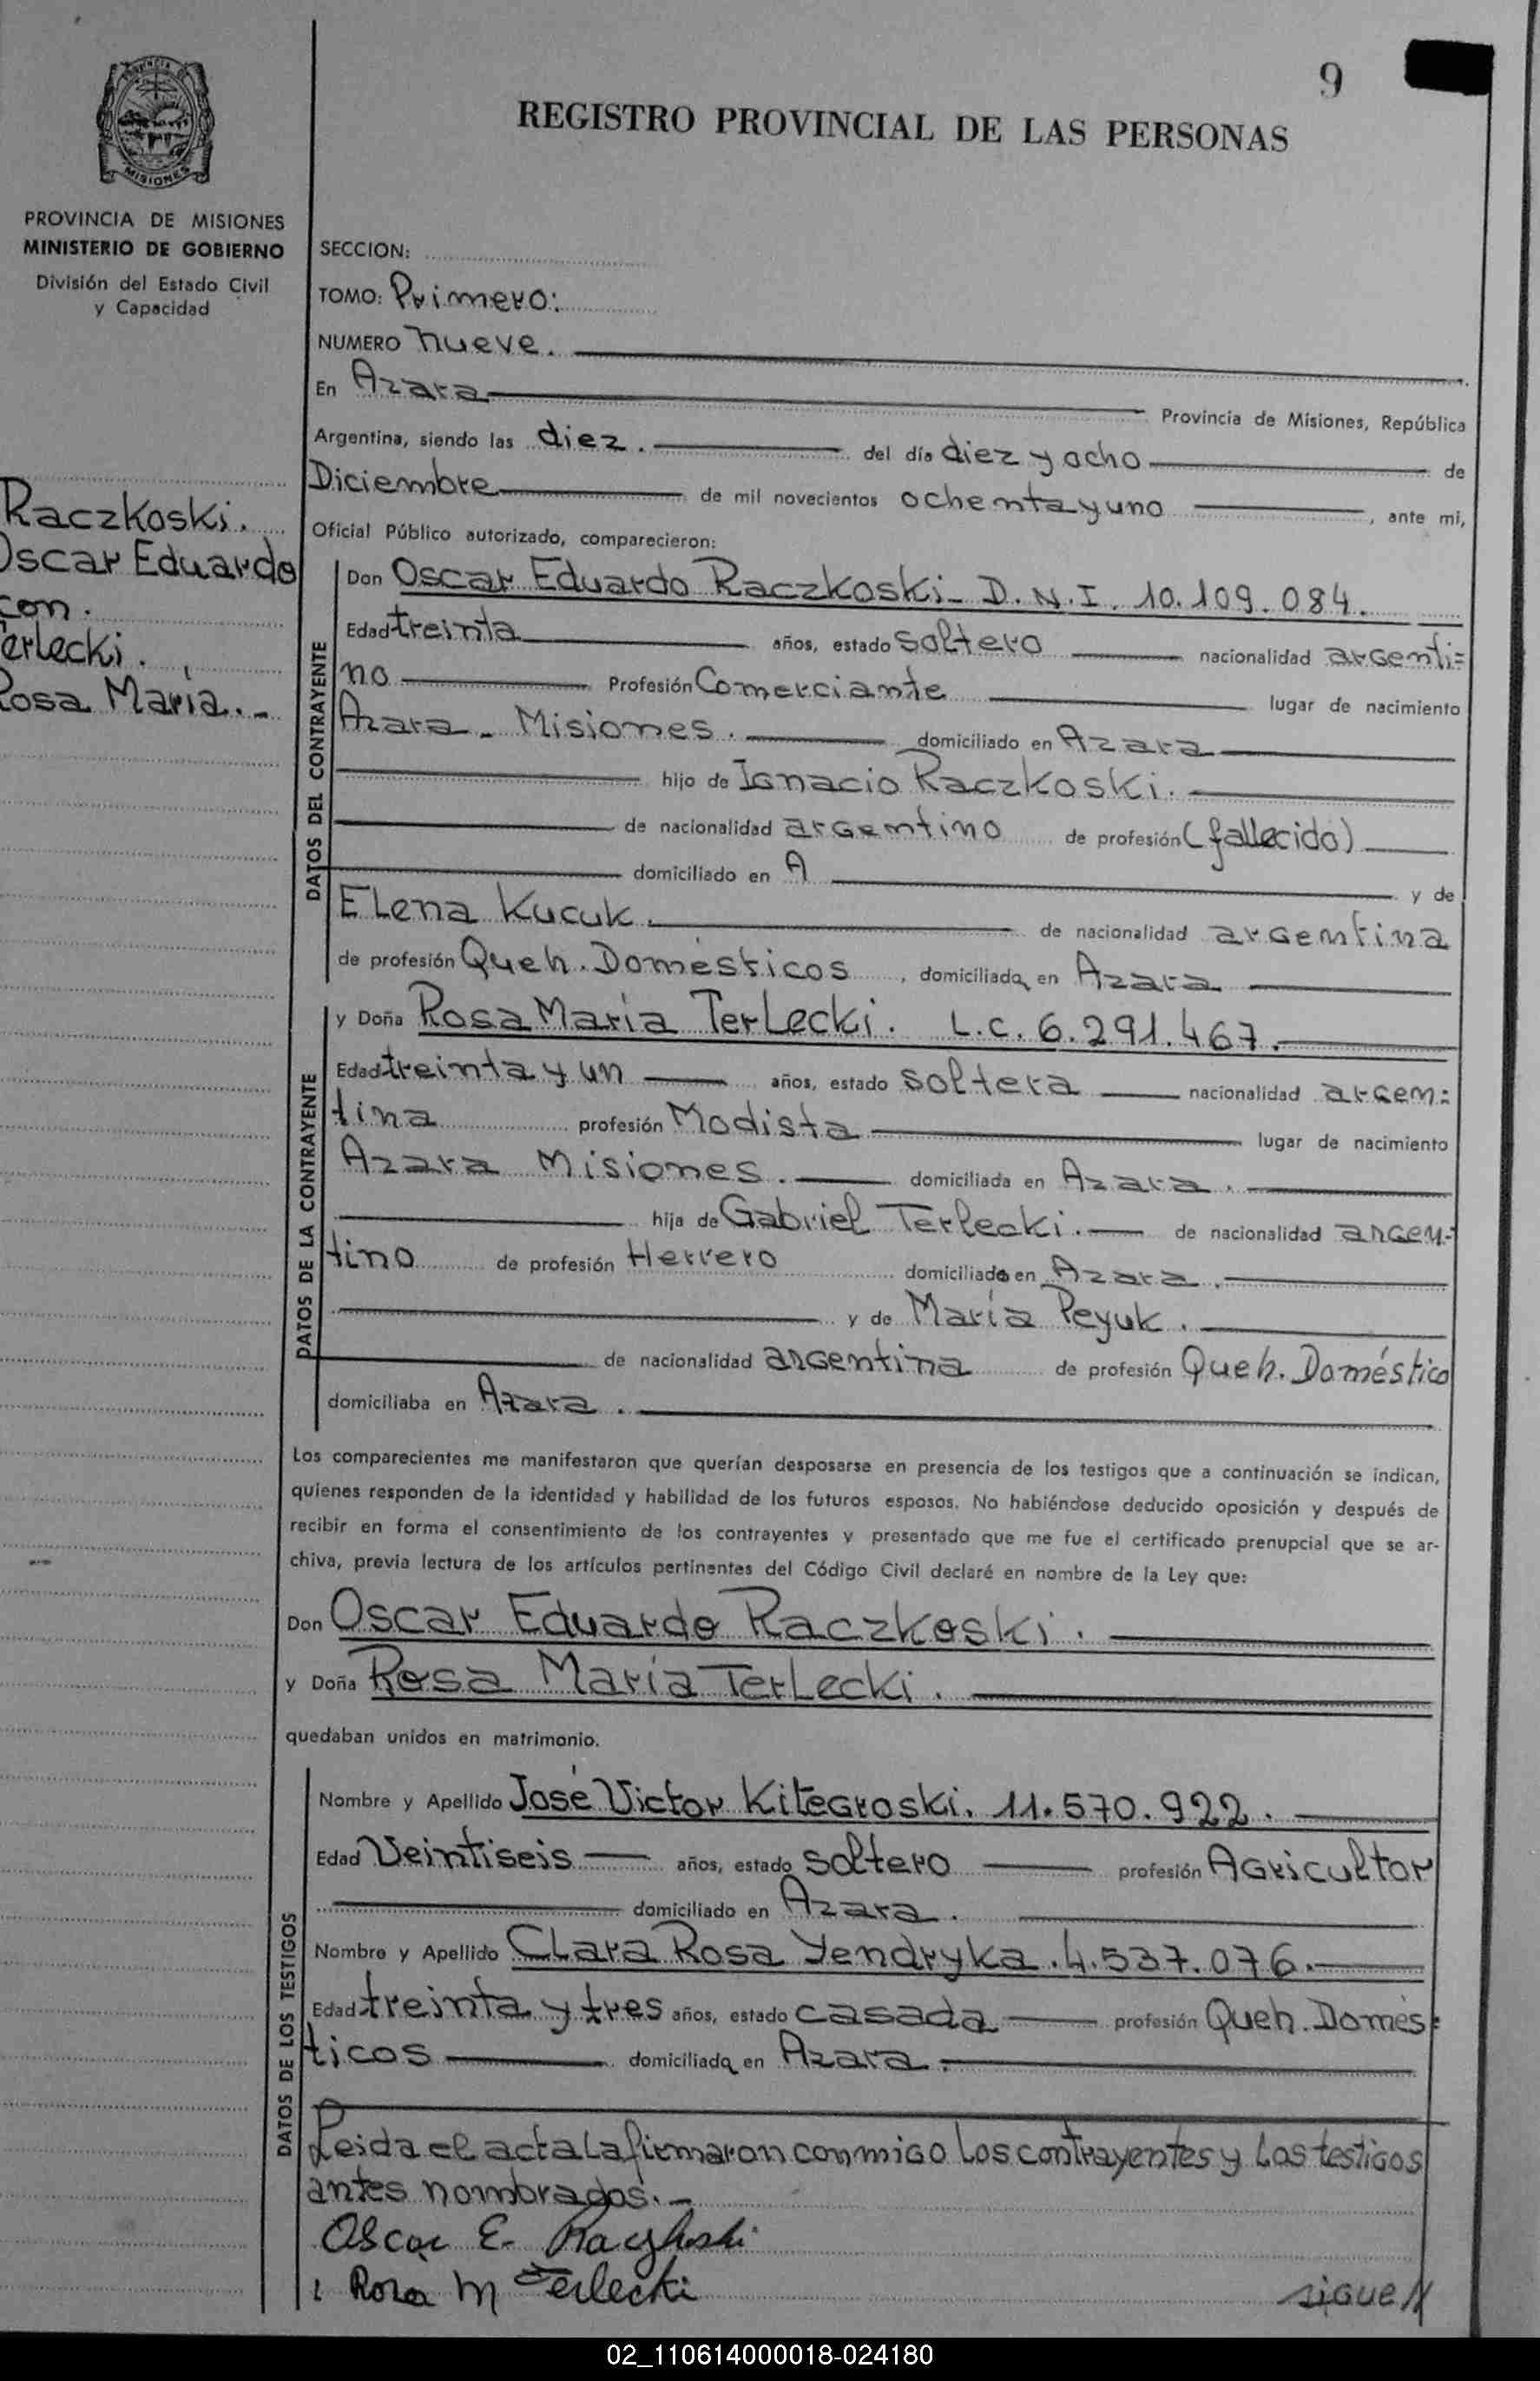 9
REGISTRO PROVINCIAL DE LAS PERSONAS
PROVINCIA DE MISIONES
MINISTERIO DE GOBIERNO
División del Estado Civil
y Capacidad
Raczkoski.
Oscar Eduardo
con.
Terlecki.
Rosa María.-
SECCION:
TOMO: Primero:
NUMERO nueve.
En Azara Provincia de Misiones, República
Argentina, siendo las diez. del día diez y ocho de
Diciembre de mil novecientos ochenta y uno, ante mi,
Oficial Público autorizado, comparecieron:
DATOS DEL CONTRAYENTE
Don Oscar Eduardo Raczkoski- D.N.I. 10.109.084.
Edad treinta años, estado soltero nacionalidad argenti=
no Profesión Comerciante lugar de nacimiento
Azara - Misiones. domiciliado en Azara
hijo de Ignacio Raczkoski.
de nacionalidad argentino de profesión (fallecido)
domiciliado en A y de
Elena Kucuk. de nacionalidad argentina
de profesión Queh. Domésticos, domiciliada en Azara
DATOS DE LA CONTRAYENTE
y Doña Rosa María Terlecki. L.C. 6.291.467.
Edad treinta y un años, estado soltera nacionalidad argen=
tina profesión Modista lugar de nacimiento
Azara Misiones. domiciliada en Azara.
hija de Gabriel Terlecki. de nacionalidad argen=
tino de profesión Herrero domiciliado en Azara.
y de María Peyuk.
de nacionalidad argentina de profesión Queh. Doméstico
domiciliaba en Azara.
Los comparecientes me manifestaron que querían desposarse en presencia de los testigos que a continuación se indican,
quienes responden de la identidad y habilidad de los futuros esposos. No habiéndose deducido oposición y después de
recibir en forma el consentimiento de los contrayentes y presentado que me fue el certificado prenupcial que se ar-
chiva, previa lectura de los artículos pertinentes del Código Civil declaré en nombre de la Ley que:
Don Oscar Eduardo Raczkoski.
y Doña Rosa María Terlecki.
quedaban unidos en matrimonio.
DATOS DE LOS TESTIGOS
Nombre y Apellido José Victor Kitegroski. 11.570.922.
Edad Veintiseis años, estado soltero profesión Agricultor
domiciliado en Azara.
Nombre y Apellido Clara Rosa Yendryka. 4.537.076.
Edad treinta y tres años, estado casada profesión Queh. Domés=
ticos domiciliada en Azara.
Leida el acta la firmaron conmigo los contrayentes y los testigos
antes nombrados.-
Oscar E. Raczkoski
Rosa M Terlecki
sigue//
02_110614000018-024180